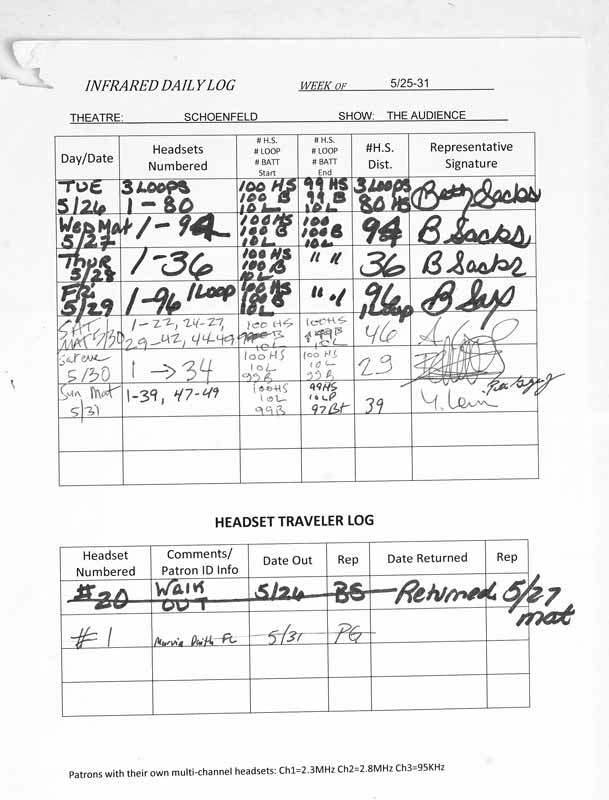 INFRARED DAILY LOG WEEK OF 5/25-31
THEATRE: SCHOENFELD SHOW: THE AUDIENCE
Day/Date Headsets Numbered # H.S. # LOOP # BATT Start # H.S. # LOOP # BATT End #H.S. Dist. Representative Signature
TUE 5/26 3 LOOPS 1 - 80 100 HS 100 B 10 L 99 HS 99 B 10 L 3 LOOPS 80 HS Betty Sacks
Wed Mat 5/27 1 - 94 100 HS 100 B 10 L 100 100 B 10 L 94 B Sacks
Thur 5/28 1 - 36 100 HS 100 B 10 L " " 36 B Sacks
Fri 5/29 1-96 1 Loop 100 HS 100 B 10 L " " 96 1 Loop B
SAT MAT 5/30 1-22, 24-27, 29-42, 44-49 100 HS 10 L 100 HS 99 B 10 L 46
Sat eve 5/30 1 → 34 100 HS 10 L 99 B 100 HS 10 L 99 B 29
Sun Mat 5/31 1-39, 47-49 100 HS 10 L 99 B 99 HS 10 LP 97 Bt 39
HEADSET TRAVELER LOG
Headset Numbered Comments/ Patron ID Info Date Out Rep Date Returned Rep
#20 WALK OUT 5/26 BS Returned 5/27 mat
#1 5/31 PG
Patrons with their own multi-channel headsets: Ch1=2.3MHz Ch2=2.8MHz Ch3=95KHz